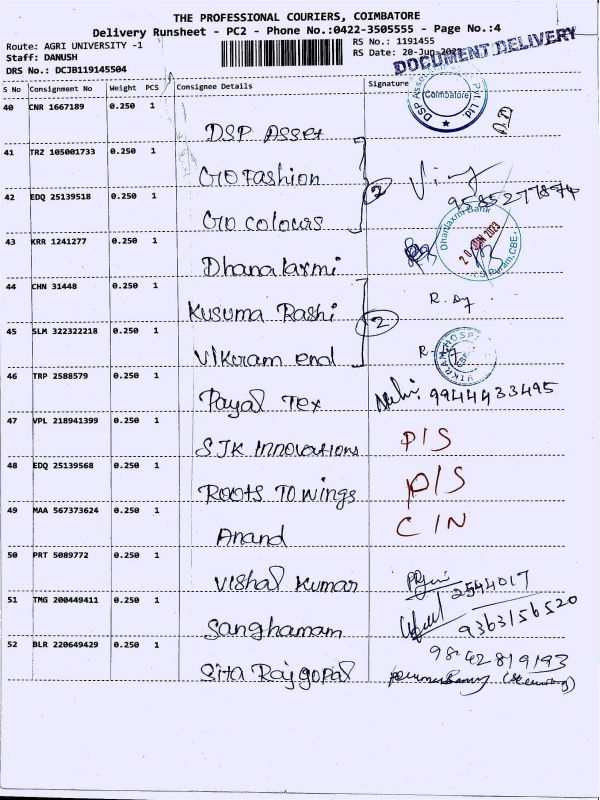 THE PROFESSIONAL COURIERS, COIMBATORE
Delivery Runsheet - PC2 - Phone No.:0422-3505555 - Page No.:4
Route: AGRI UNIVERSITY -1 RS No.: 1191455
Staff: DANUSH RS Date: 20-Jun-2023
DOCUMENT DELIVERY
DRS No.: DCJB119145504
S No Consignment No Weight PCS Consignee Details Signature
DSP Asset Pvt Ltd. Coimbatore
40 CNR 1667189 0.250 1 DSP Asset
41 TRZ 105001733 0.250 1 GIO Fashion
2
42 EDQ 25139518 0.250 1 GIO colours 9585277874
Dhanlaxmi Bank 20 JUN 2023 CBE
43 KRR 1241277 0.250 1 Dhanalaxmi
44 CHN 31448 0.250 1 Kusuma Rashi
2
45 SLM 322322218 0.250 1 Vikram end
46 TRP 2588579 0.250 1 Payal Tex 9944433495
47 VPL 218941399 0.250 1 SJK Innovations P/S
48 EDQ 25139568 0.250 1 Roots To wings P/S
49 MAA 567373624 0.250 1 Anand C/N
50 PRT 5089772 0.250 1 Vishal Kumar 2544017
51 TMG 200449411 0.250 1 Sanghamam 9363156520
52 BLR 220649429 0.250 1 Sita Rajgopal 9842819193